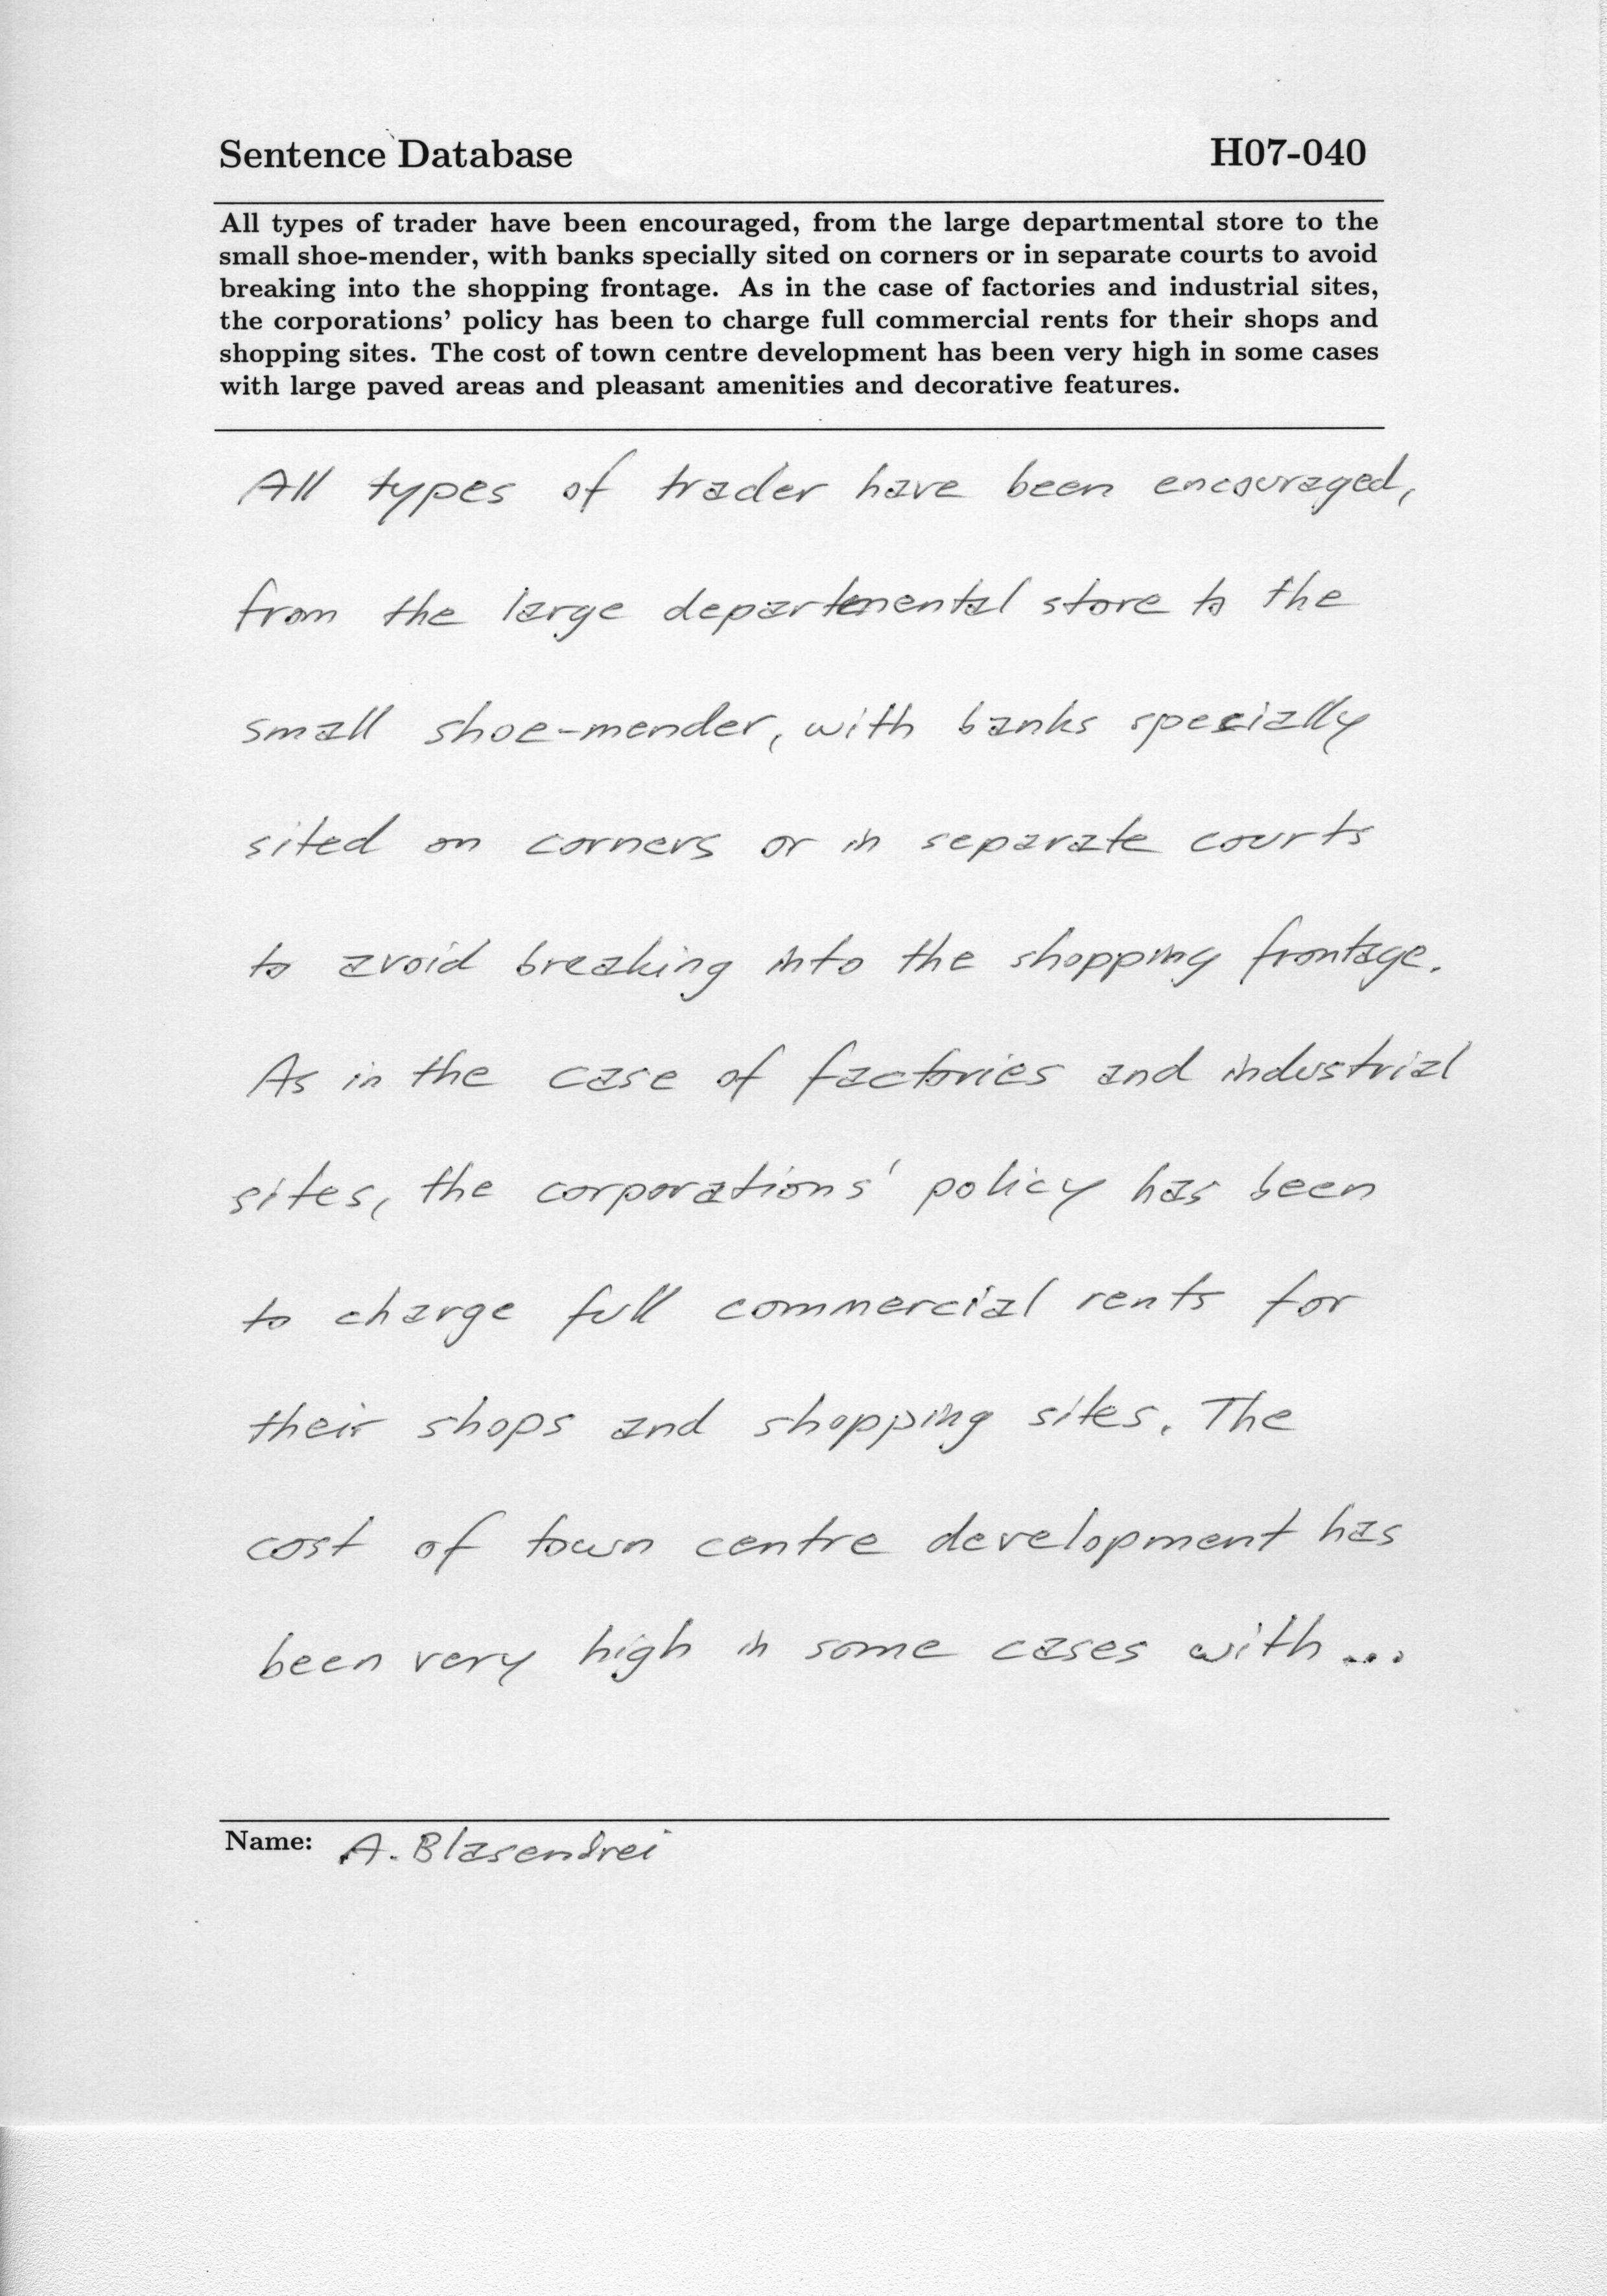 Sentence Database H07-040
All types of trader have been encouraged, from the large departmental store to the
small shoe-mender, with banks specially sited on corners or in separate courts to avoid
breaking into the shopping frontage. As in the case of factories and industrial sites,
the corporations' policy has been to charge full commercial rents for their shops and
shopping sites. The cost of town centre development has been very high in some cases
with large paved areas and pleasant amenities and decorative features.
All types of trader have been encouraged,
from the large departmental store to the
small shoe-mender, with banks specially
sited on corners or in separate courts
to avoid breaking into the shopping frontage.
As in the case of factories and industrial
sites, the corporations' policy has been
to charge full commercial rents for
their shops and shopping sites. The
cost of town centre development has
been very high in some cases with...
Name: A.